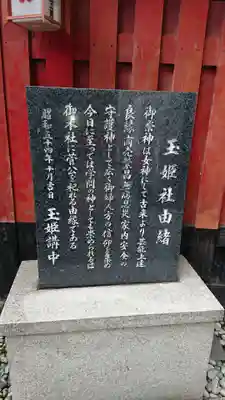 玉姫社由緒
御祭神は女神にして古来より芸能上達
良縁、商売繁昌、無病息災、家内安全の
守護神として広く御婦人方の信仰を集め
今日に至っては学問の神としても崇められるは
御本社に菅公を祀れる由縁である
昭和五十四年十月吉日 玉姫講中